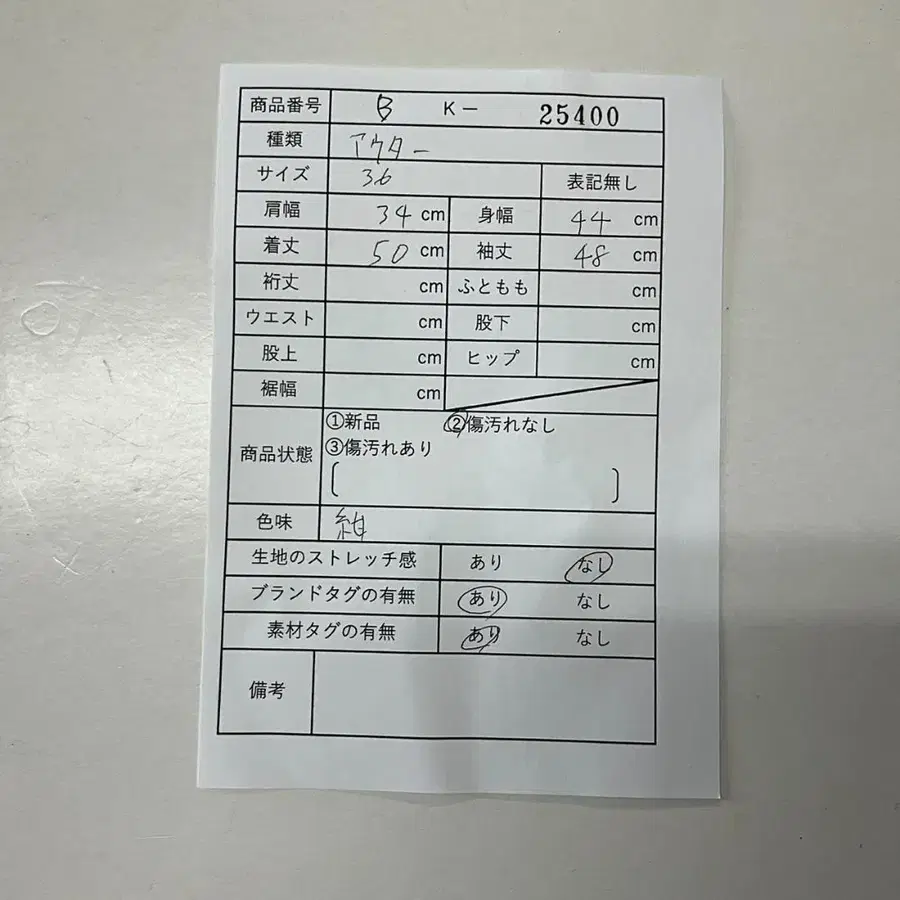 商品番号 B K- 25400
種類 アウター
サイズ 36 表記無し
肩幅 34 cm 身幅 44 cm
着丈 50 cm 袖丈 48 cm
裄丈 cm ふともも cm
ウエスト cm 股下 cm
股上 cm ヒップ cm
裾幅 cm
商品状態 ①新品 ②傷汚れなし
③傷汚れあり
[ ]
色味 紺
生地のストレッチ感 あり なし
ブランドタグの有無 あり なし
素材タグの有無 あり なし
備考